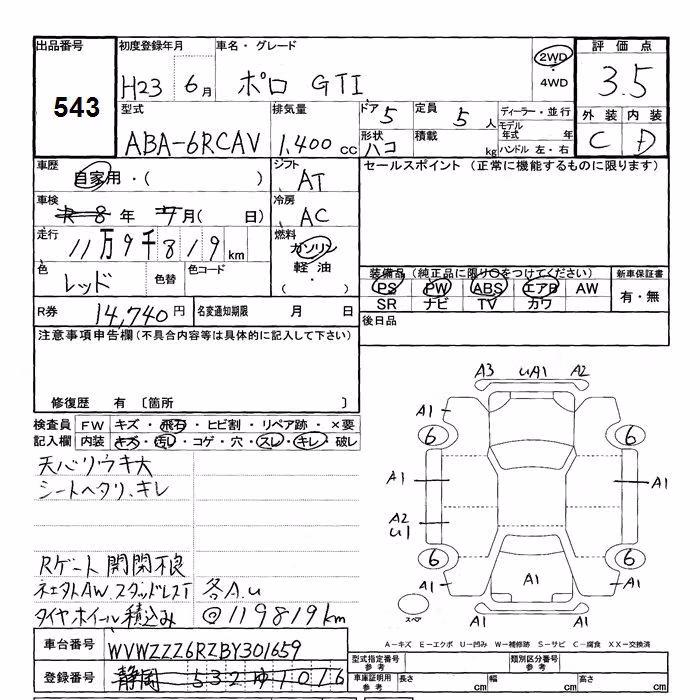 出品番号 初度登録年月 車名・グレード 評価点
543 H23 6月 ポロ GTI 2WD・4WD 3.5
型式 排気量 ドア 5 定員 5人 ディーラー・並行 外装 内装
ABA-6RCAV 1,400cc 形状 ハコ 積載 kg モデル年式 年 C D
ハンドル 左・右
車歴 自家用・( ) シフト AT セールスポイント (正常に機能するものに限ります)
車検 R8年 7月( 日) 冷房 AC
走行 11万9千819km 燃料 ガソリン
軽油
色 レッド 色替 色コード 装備品 (純正品に限り○をつけてください) 新車保証書
PS PW ABS エアB AW 有・無
SR ナビ TV カワ
R券 14,740円 名変通知期限 月 日 後日品
注意事項申告欄(不具合内容等は具体的に記入して下さい)
修復歴 有 〔箇所 〕
検査員 FW キズ・飛石・ヒビ割・リペア跡・×要
記入欄 内装 キズ・汚レ・コゲ・穴・スレ・キレ・破レ
A3 uA1 A2
A1 A1
6 6
天バリウキ大
シートヘタリ、キレ
A1 A1
A2
u1
6 6
Rゲート開閉不良
A1 A1 A1
ネエタトAW、スタッドレスT 各A.u
タイヤホイール積込み @119819km
スペア
A1 A1
A-キズ E-エクボ U-凹み W-補修跡 S-サビ C-腐食 XX-交換済
車台番号 WVWZZZ6RZBY301659
型式指定番号 参考 類別区分番号 参考
登録番号 静岡 532 ゆ 1076
車庫証明用 参考 長さ cm 幅 cm 高さ cm